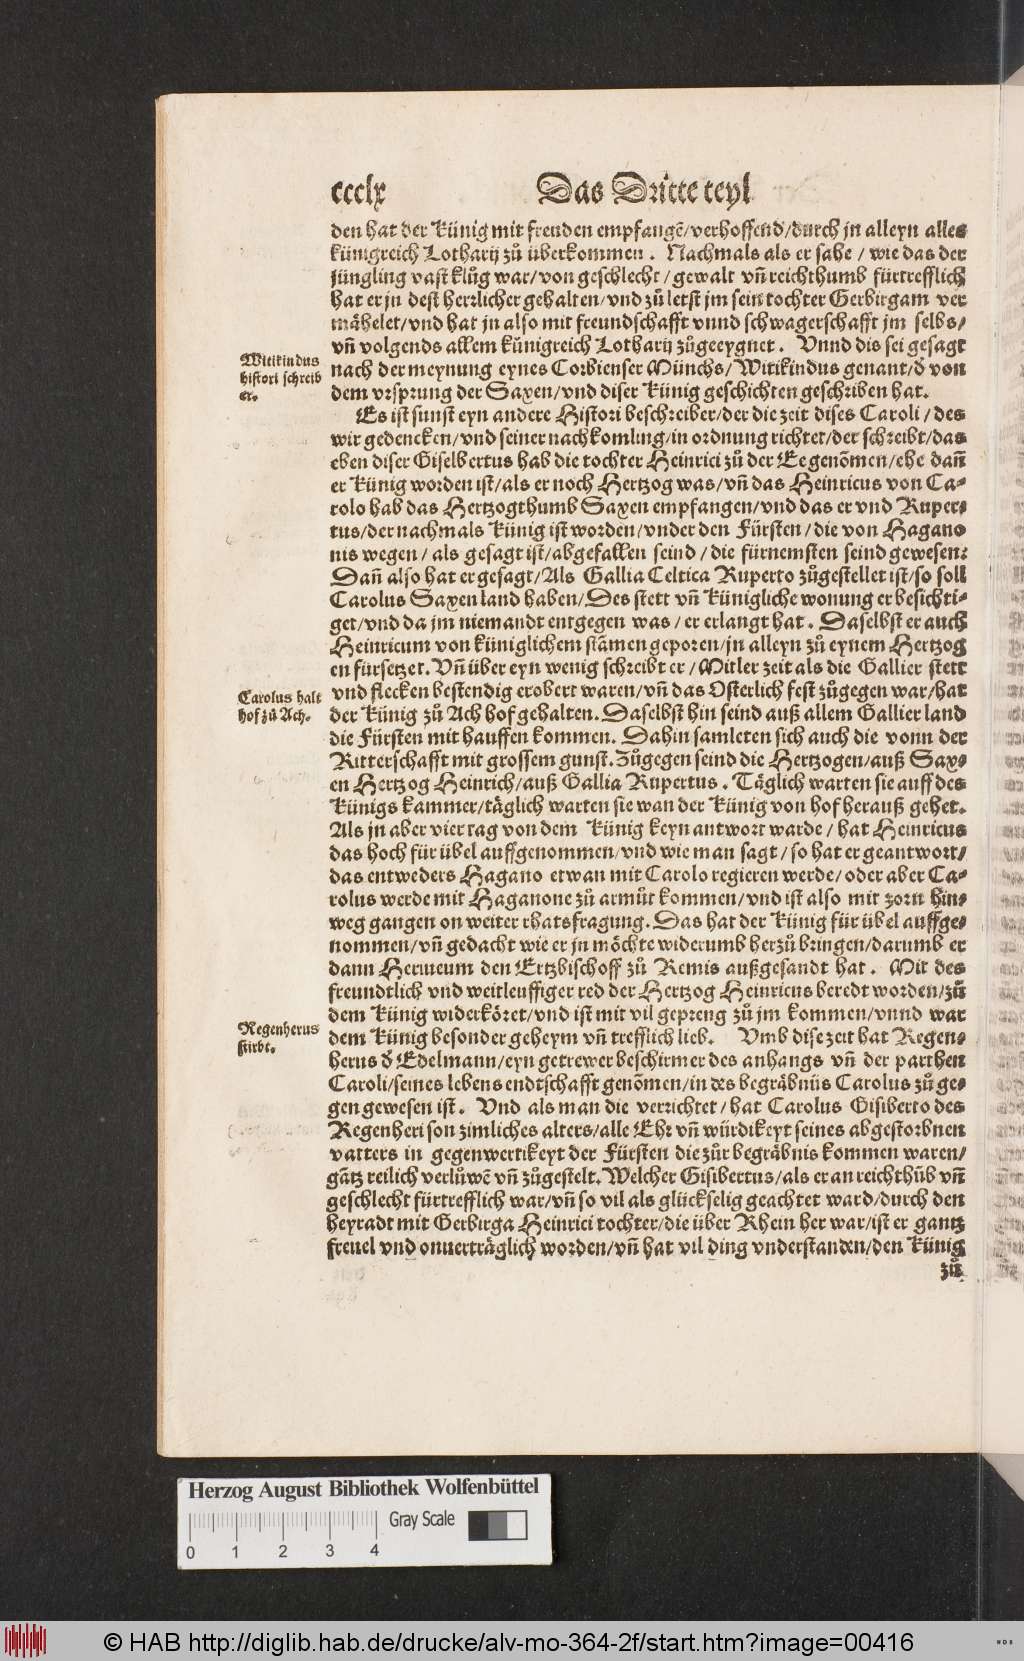 ccclx Das Dritte teyl
den hat der Künig mit freuden empfangē/verhoffend/durch jn alleyn alles
künigreich Lotharij zů überkommen. Nachmals als er sahe / wie das der
jüngling vast klůg war/von geschlecht/gewalt vñ reichthumb fürtrefflich
hat er jn dest herrlicher gehalten/vnd zů letst jm sein tochter Gerbirgam ver
mähelet/vnd hat jn also mit freundschafft vnnd schwagerschafft jm selbs/
vñ volgends allem künigreich Lotharij zůgeeygnet. Vnnd dis sei gesagt
Witikindus
histori schreib
er.
nach der meynung eynes Corbienser Münchs/Witikindus genant/đ von
dem vrsprung der Saxen/vnd diser Künig geschichten geschriben hat.
Es ist sunst eyn andere Histori beschreiber/der die zeit dises Caroli/des
wir gedencken/vnd seiner nachkomling/in ordnung richtet/der schreibt/das
eben diser Giselbertus hab die tochter Heinrici zů der Ee genõmen/ehe dañ
er Künig worden ist/als er noch Hertzog was/vñ das Heinricus von Ca-
rolo hab das Hertzogthumb Saxen empfangen/vnd das er vnd Ruper-
tus/der nachmals Künig ist worden/vnder den Fürsten/die von Hagano
nis wegen/als gesagt ist/abgefallen seind/die fürnemsten seind gewesen:
Dañ also hat er gesagt/Als Gallia Celtica Ruperto zůgestellet ist/so soll
Carolus Saxen land haben/Des stett vñ Künigliche wonung er besichti-
get/vnd da jm niemandt entgegen was/er erlangt hat. Daselbst er auch
Heinricum von küniglichem stãmen geporen/jn alleyn zů eynem Hertzog
en fürsetzet. Vñ über eyn wenig schreibt er/Mitler zeit als die Gallier stett
Carolus halt
hof zů Ach.
vnd flecken bestendig erobert waren/vñ das Osterlich fest zůgegen war/hat
der Künig zů Ach hof gehalten. Daselbst hin seind auß allem Gallier land
die Fürsten mit hauffen kommen. Dahin samleten sich auch die vonn der
Ritterschafft mit grossem gunst. Zůgegen seind die Hertzogen/auß Sax-
en Hertzog Heinrich/auß Gallia Rupertus. Täglich warten sie auff des
Künigs kammer/täglich warten sie wan der Künig von hof herauß gehet.
Als jn aber vier tag von dem Künig keyn antwort warde/hat Heinricus
das hoch für übel auffgenommen/vnd wie man sagt/so hat er geantwort/
das entweders Hagano etwan mit Carolo regieren werde/oder aber Ca-
rolus werde mit Haganone zů armůt kommen/vnd ist also mit zorn hin-
weg gangen on weiter rhatsfragung. Das hat der Künig für übel auffge-
nommen/vñ gedacht wie er jn möchte widerumb herzů bringen/darumb er
dann Herueum den Ertzbischoff zů Remis außgesandt hat. Mit des
freundtlich vnd weitleuffiger red der Hertzog Heinricus beredt worden/zů
dem Künig widerköret/vnd ist mit vil gepreng zů jm kommen/vnnd war
Regenherus
stirbt.
dem Künig besonder geheym vñ trefflich lieb. Vmb dise zeit hat Regen-
herus đ Edelmann/eyn getrewer beschirmer des anhangs vñ der parthen
Caroli/seines lebens endtschafft genõmen/in des begräbnüs Carolus zů ge-
gen gewesen ist. Vnd als man die verrichtet/hat Carolus Gisiberto des
Regenheri son zimliches alters/alle Ehr vñ würdikeyt seines abgestorbnen
vatters in gegenwertikeyt der Fürsten die zůr begräbnis kommen waren/
gãtz reilich verlůwē vñ zůgestelt. Welcher Gisibertus/als er an reichthũb vñ
geschlecht fürtrefflich war/vñ so vil als glückselig geachtet ward/durch den
heyradt mit Gerbirga Heinrici tochter/die über Rhein her war/ist er gantz
freuel vnd onuerträglich worden/vñ hat vil ding vnderstanden/den Künig
zů
Herzog August Bibliothek Wolfenbüttel
Gray Scale
0 1 2 3 4
© HAB http://diglib.hab.de/drucke/alv-mo-364-2f/start.htm?image=00416